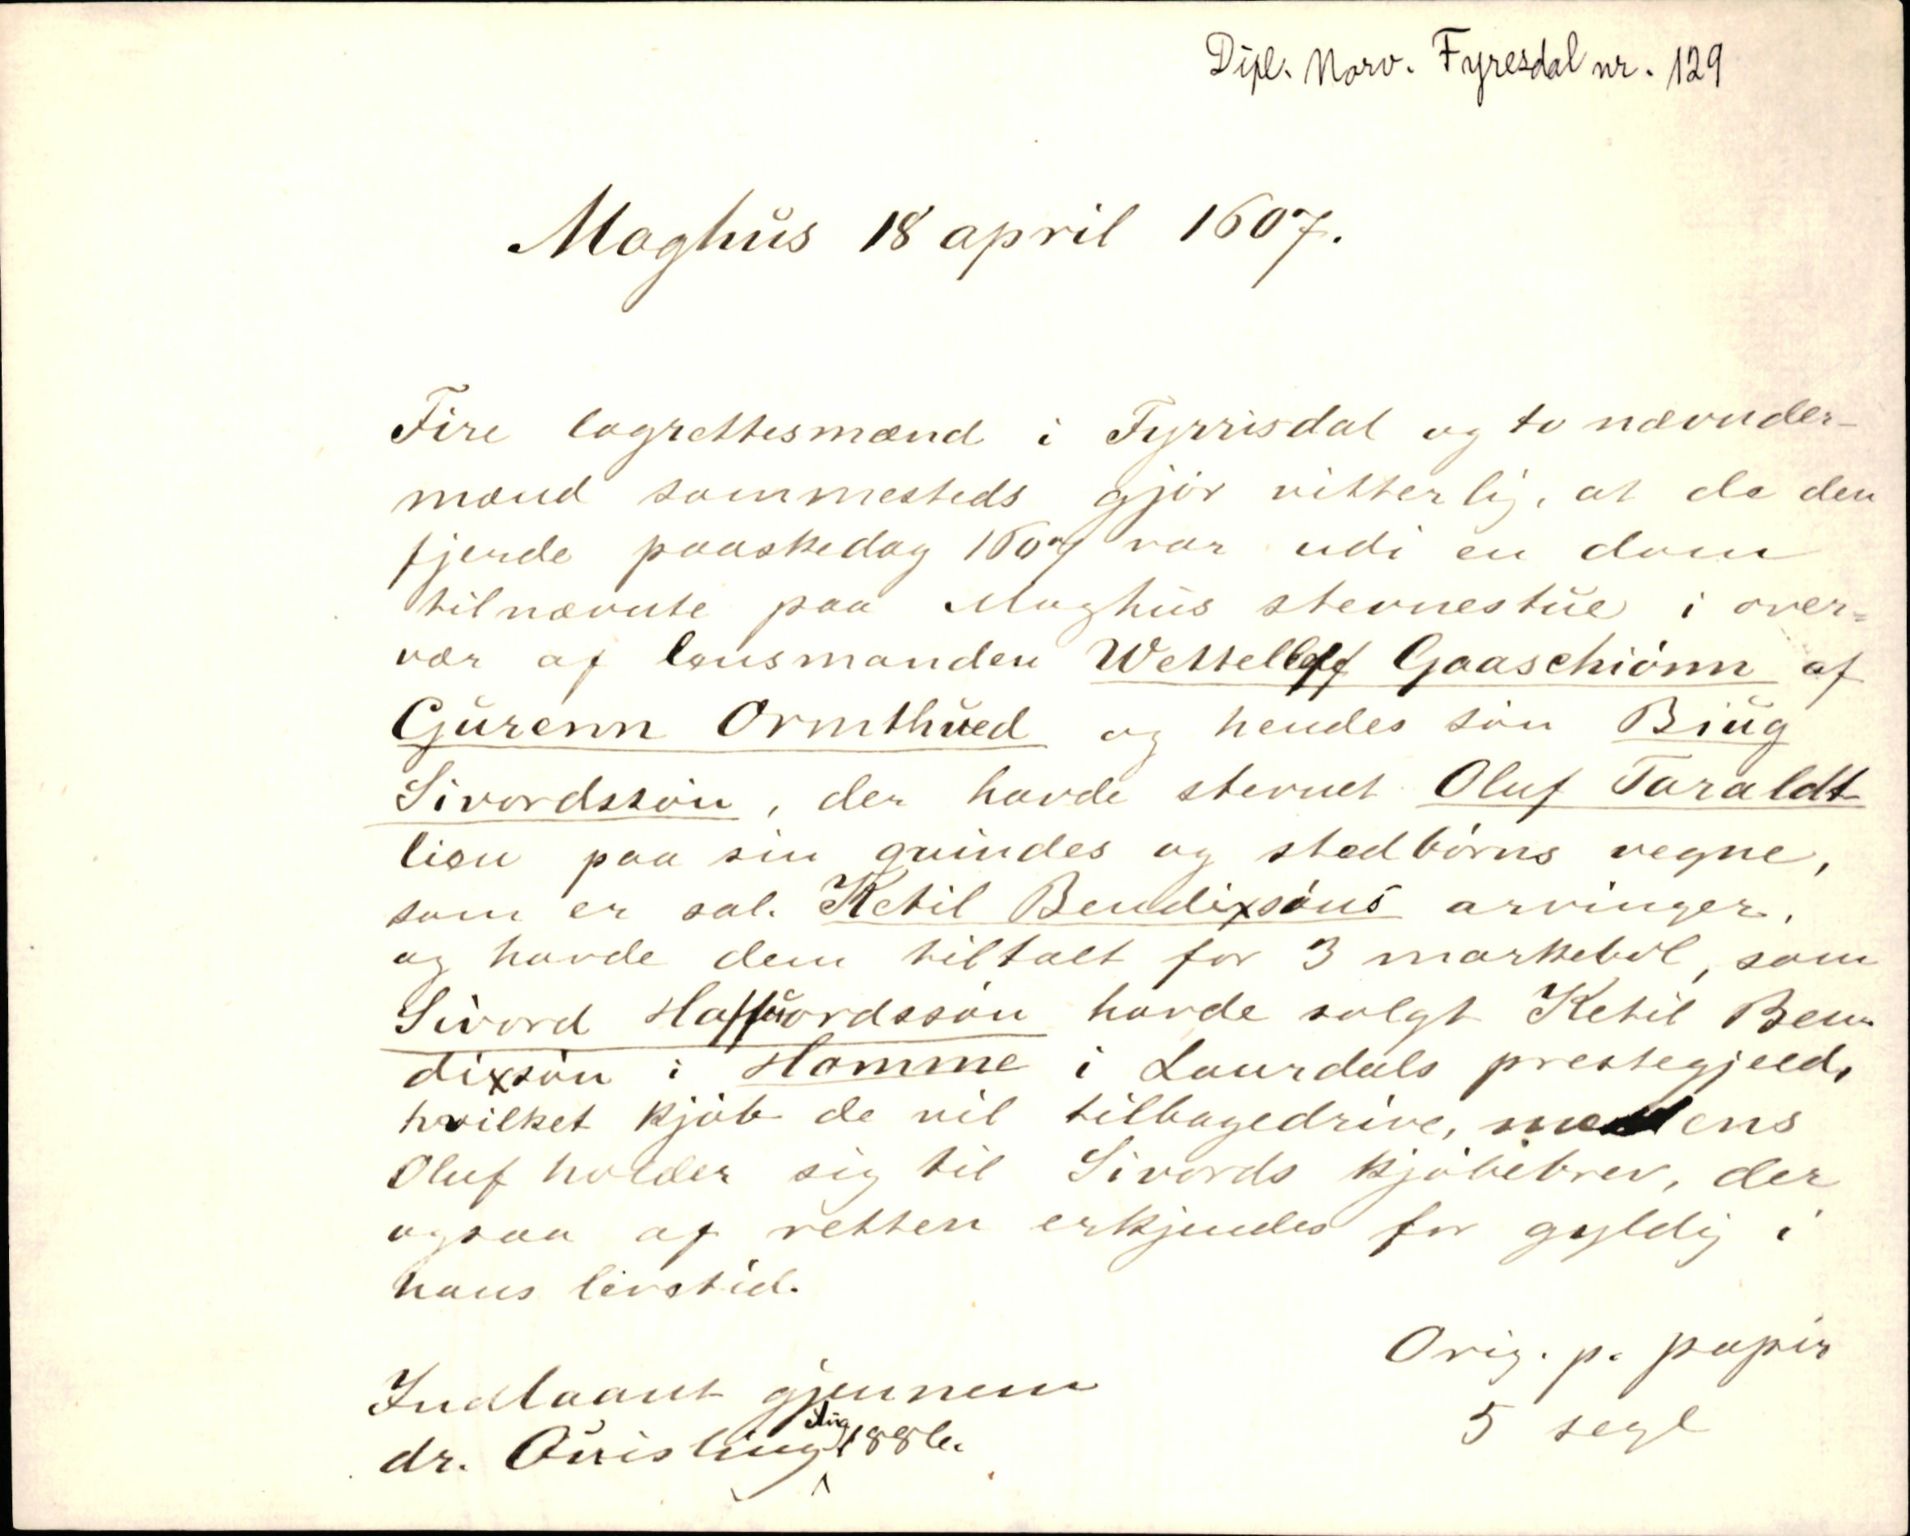 Dipl. Norv. Fyresdal nr. 129
Moghus 18 april 1607.
Fire lagrettesmænd i Fyrrisdal og to nævnder-
mænd sammesteds gjör vitterlig, at de den
fjerde paaskedag 1607 var udi en dom
tilnævnte paa Moghus stevnestue i over-
vær af lensmanden Wettelleff Gaaschiönn af
Gurenn Ormthued og hendes sön Biug
Sivordssön, der havde stevnet Oluf Taraldt
lien paa sin quindes og stedbörns vegne,
som er sal. Ketil Bendixsöns arvinger,
og havde dem tiltalt for 3 markeböl, som
Sivord Haffuordssön havde solgt Ketil Ben-
dixsön i Homme i Laurdals prestegjeld,
hvilket kjöb de vil tilbagedrive, medens
Oluf holder sig til Sivords kjöbebrev, der
ogsaa af retten erkjendes for gyldig i
hans livstid.
Orig. p. papir
5 segl
Indlaant gjennem
dr. Quisling Aug 1886.